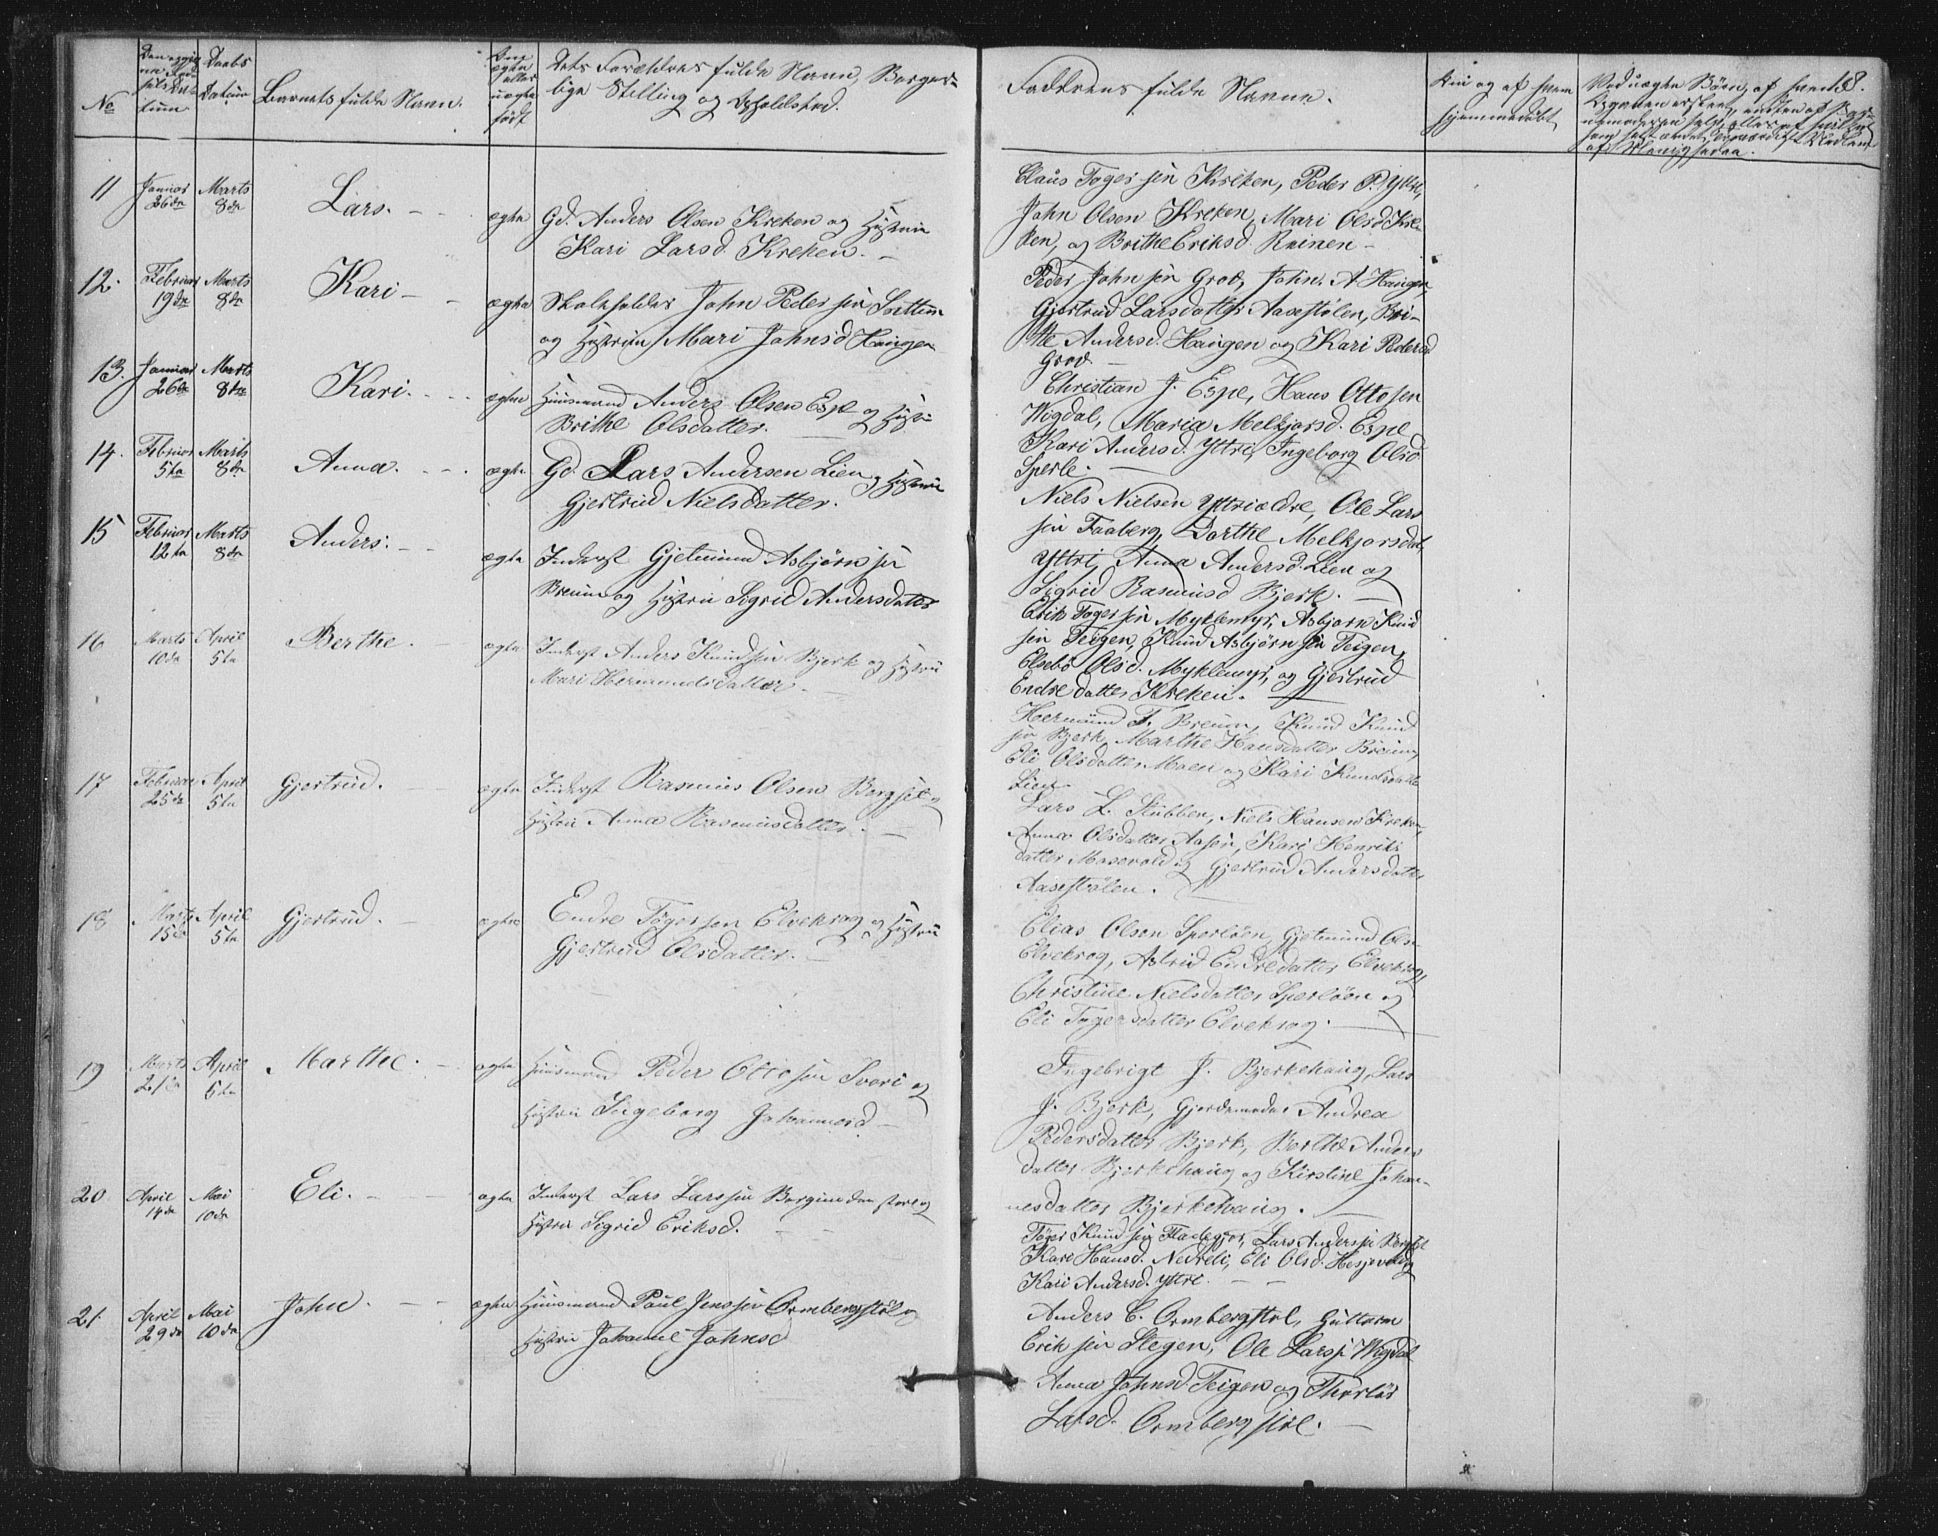 No
Daabs
Datum
Barnets fulde Navn.
ægte
eller
uægte
født
Dets Forældres fulde Navn, Borger-
lige Stilling og Opholdsted.
Faddrenes fulde Navne.
Naar og af hvem
hjemmedøbt
168.
11 Januar 26de Marts 8de Lars. ægte Gd. Anders Olsen Kreken og Hustrue
Kari Larsd. Kreken.
Claus Togersen Kreken, Peder P. Yttri,
John Olsen Kreken, Mari Olsd Kre-
ken, og Brithe Eriksd. Reinen
12. Februar 19de Marts 8de Kari ægte Skoleholder John Pedersen
og Hustrue Mari Johnsd Haugen
Peder Johnsen Grov, John A. Haugen,
Gjertrud Larsdatter Aasestølen, Bri-
the Andersd. Haugen og Kari Pedersd
Grov
13. Januar 26de Marts 8de Kari. ægte Huusmand Anders Olsen Espe og Hust
Brithe Olsdatter.
Christian J. Espe, Hans Ottosen
Vigdal, Maria Melkjorsd. Espe
Kari Andersd. Yttri, Ingeborg Olsd
Sperle.
14. Februar 5te Marts 8de Anna. ægte Gd. Lars Andersen Lien og Hustrue
Gjertrud Nielsdatter.
Niels Nielsen Yttri ældre, Ole Lars
sen Faaberg, Dorthe Melkjorsdat,
Yttri, Anna Andersd. Lien og
Sigrid Rasmusd Bjerk.
15 Februar 12te Marts 8de Anders. ægte Inderst Gjetmund Asbjørnsen
Breum og Hustrue Sigrid Andersdatter
Erik Togersen Myklemyr, Asbjørn Knud
sen Teigen, Knud Asbjørnsen Teigen,
Elsebe Olsd. Myklemyr, og Gjertrud
Endredatter Kreken.
16 Marts 10de April 5te Berthe. ægte Inderst Anders Knudsen Bjerk og Hustrue
Mari Hermundsdatter.
Hermund T. Breum, Knud Knud
sen Bjerk, Marthe Hansdatter Breum,
Eli Olsdatter Moen og Kari Knudsdatter
Lien.
17 Februar 25de April 5te Gjertrud. ægte Inderst Rasmus Olsen Bergset og
Hustrue Anna Rasmusdatter.
Lars L. Stubben, Niels Hansen Kreken,
Anna Olsdatter Aasen, Kari Henriks
datter Mosevold og Gjertrud Andersdatter
Aasestølen.
18 Marts 15de April 5te Gjertrud. ægte Endre Tøgersen Elvekrog og Hustrue
Gjertrud Olsdatter.
Elias Olsen Sperløen, Gjetmund Ols.
Elvekrog, Astrid Endredatter Elvekrog,
Christine Nielsdatter Sperløen og
Eli Tøgersdatter Elvekrog.
19 Marts 21de April 6te Marthe. ægte Huusmand Peder Ottosen Svori og
Hustrue Ingeborg Johannesd
Ingebrigt J. Bjerkehaug, Lars
J. Bjerk, Gjordemoder Andrea
Pedersdatter Bjerk, Berthe Anders
datter Bjerkehaug og Kirstine Johan-
nesdatter Bjerkehaug.
20 April 14de Mai 10de Eli. ægte Inderst Lars Larssen Borgund den store og
Hustrue Sigrid Eriksd.
Tøger Knudsen Fladegjor, Lars Anderssen Bergset
Kari Hansd. Nedreli, Eli Olsd. Hesjevold og
Kari Andersd. Yttri.
21. April 29de Mai 10de John. ægte Huusmand Paul Jenssen Ormbergstøl og
Hustrue Johanne Johnsd
Anders C. Ormbergstøl, Guttorm
Eriksen Stegen, Ole Larss. Vigdal
Anna Johnsd Teigen og
Larsd. Ormbergstøl.